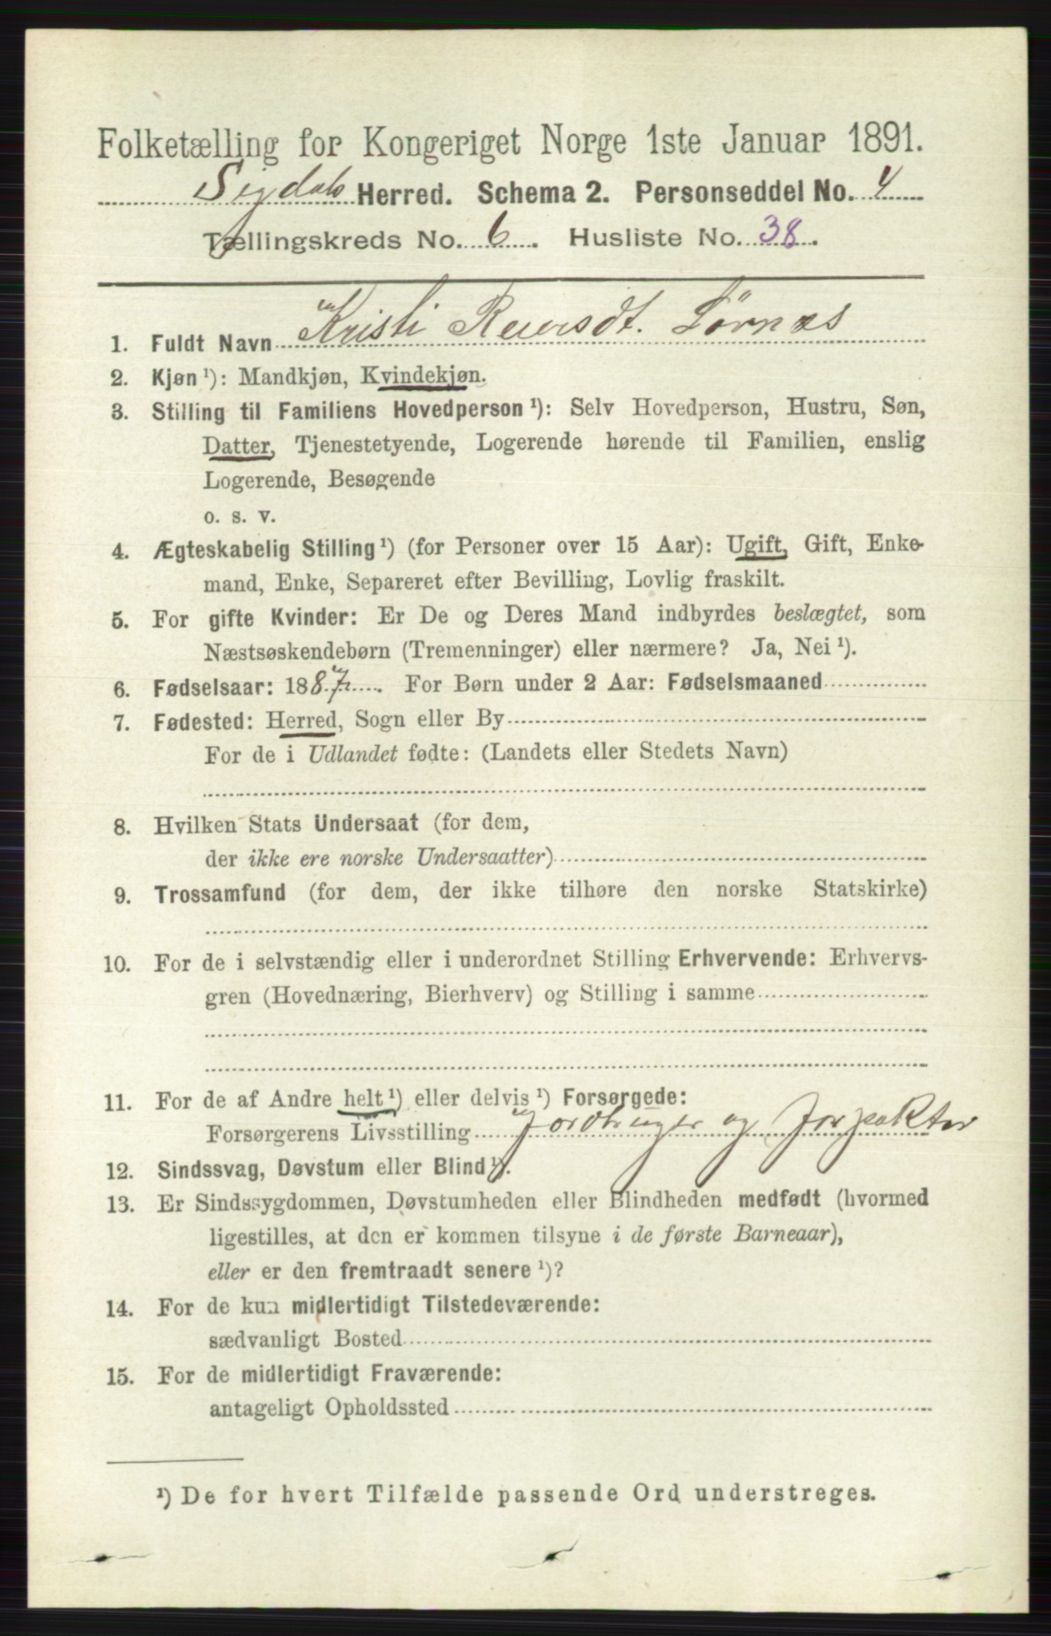 Folketælling for Kongeriget Norge 1ste Januar 1891.
Sigdals Herred. Schema 2. Personseddel No. 4
Tællingskreds No. 6. Husliste No. 38.
1. Fuldt Navn Kristi Reiersdt. Sørnæs
2. Kjøn ¹): Mandkjøn, Kvindekjøn.
3. Stilling til Familiens Hovedperson ¹): Selv Hovedperson, Hustru, Søn,
Datter, Tjenestetyende, Logerende hørende til Familien, enslig
Logerende, Besøgende
o. s. v.
4. Ægteskabelig Stilling ¹) (for Personer over 15 Aar): Ugift, Gift, Enke-
mand, Enke, Separeret efter Bevilling, Lovlig fraskilt.
5. For gifte Kvinder: Er De og Deres Mand indbyrdes beslægtet, som
Næstsøskendebørn (Tremenninger) eller nærmere? Ja, Nei ¹).
6. Fødselsaar: 1887. For Børn under 2 Aar: Fødselsmaaned
7. Fødested: Herred, Sogn eller By
For de i Udlandet fødte: (Landets eller Stedets Navn)
8. Hvilken Stats Undersaat (for dem,
der ikke ere norske Undersaatter)
9. Trossamfund (for dem, der ikke tilhøre den norske Statskirke)
10. For de i selvstændig eller i underordnet Stilling Erhvervende: Erhvervs-
gren (Hovednæring, Bierhverv) og Stilling i samme
11. For de af Andre helt ¹) eller delvis ¹) Forsørgede:
Forsørgerens Livsstilling Jordbruger og Forpakter
12. Sindssvag, Døvstum eller Blind ¹).
13. Er Sindssygdommen, Døvstumheden eller Blindheden medfødt (hvormed
ligestilles, at den er kommen tilsyne i de første Barneaar),
eller er den fremtraadt senere ¹)?
14. For de kun midlertidigt Tilstedeværende:
sædvanligt Bosted
15. For de midlertidigt Fraværende:
antageligt Opholdssted
¹) De for hvert Tilfælde passende Ord understreges.